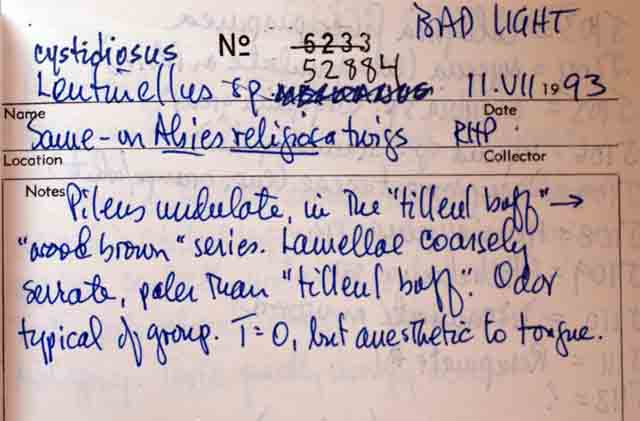 BAD LIGHT
cystidiosus No 6233
52884
Lentinellus sp. 11.VII 1993
Name Date
Same - on Abies religiosa twigs RHP.
Location Collector
Notes Pileus undulate, in the "tilleul buff" →
"wood brown" series. Lamellae coarsely
serrate, paler than "tilleul buff". Odor
typical of group. T=0, but anesthetic to tongue.